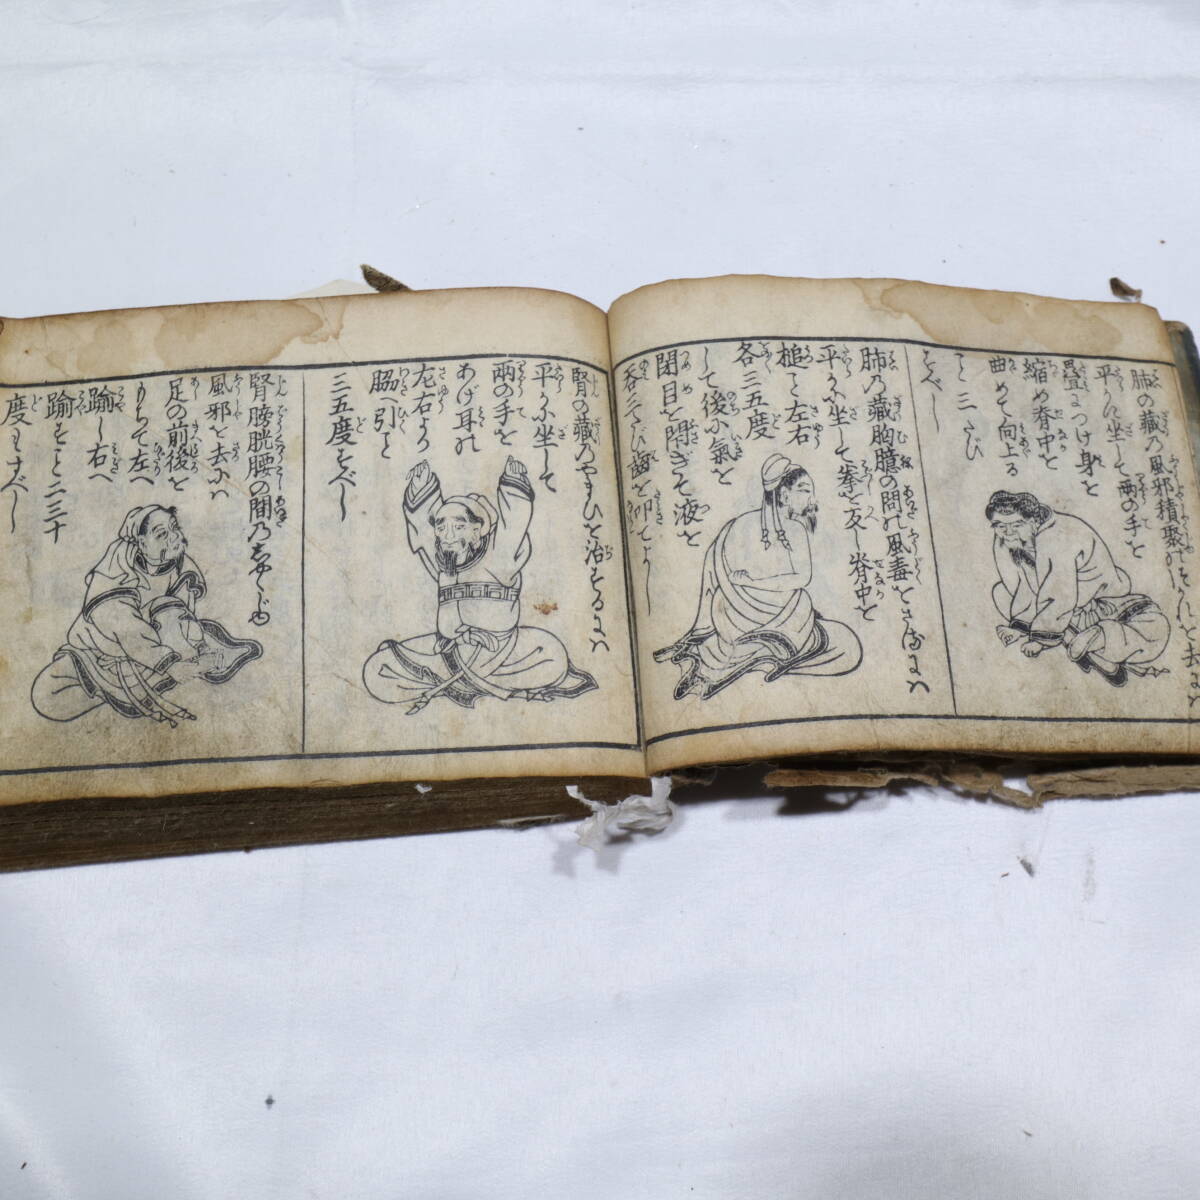 肺の藏乃風邪積聚
平らに坐して両の手を
疊につけ身を
縮め脊中を
曲めて向上る
こと三たび
すべし
肺乃藏胸臆の間の風毒をさるには
平らに坐して拳を反し脊中を
槌こと左右
各三五度
して後に氣を
閉目を閉ぎて液を
呑三たび齒を叩てよし
腎の藏乃やまひを治するには
平らに坐して
両の手を
あげ耳の
左右より
脇へ引こと
三五度すべし
腎膀胱腰の間乃
風邪を去には
足の前後を
もちて左へ
踰し右へ
踰すこと三三十
度もすべし